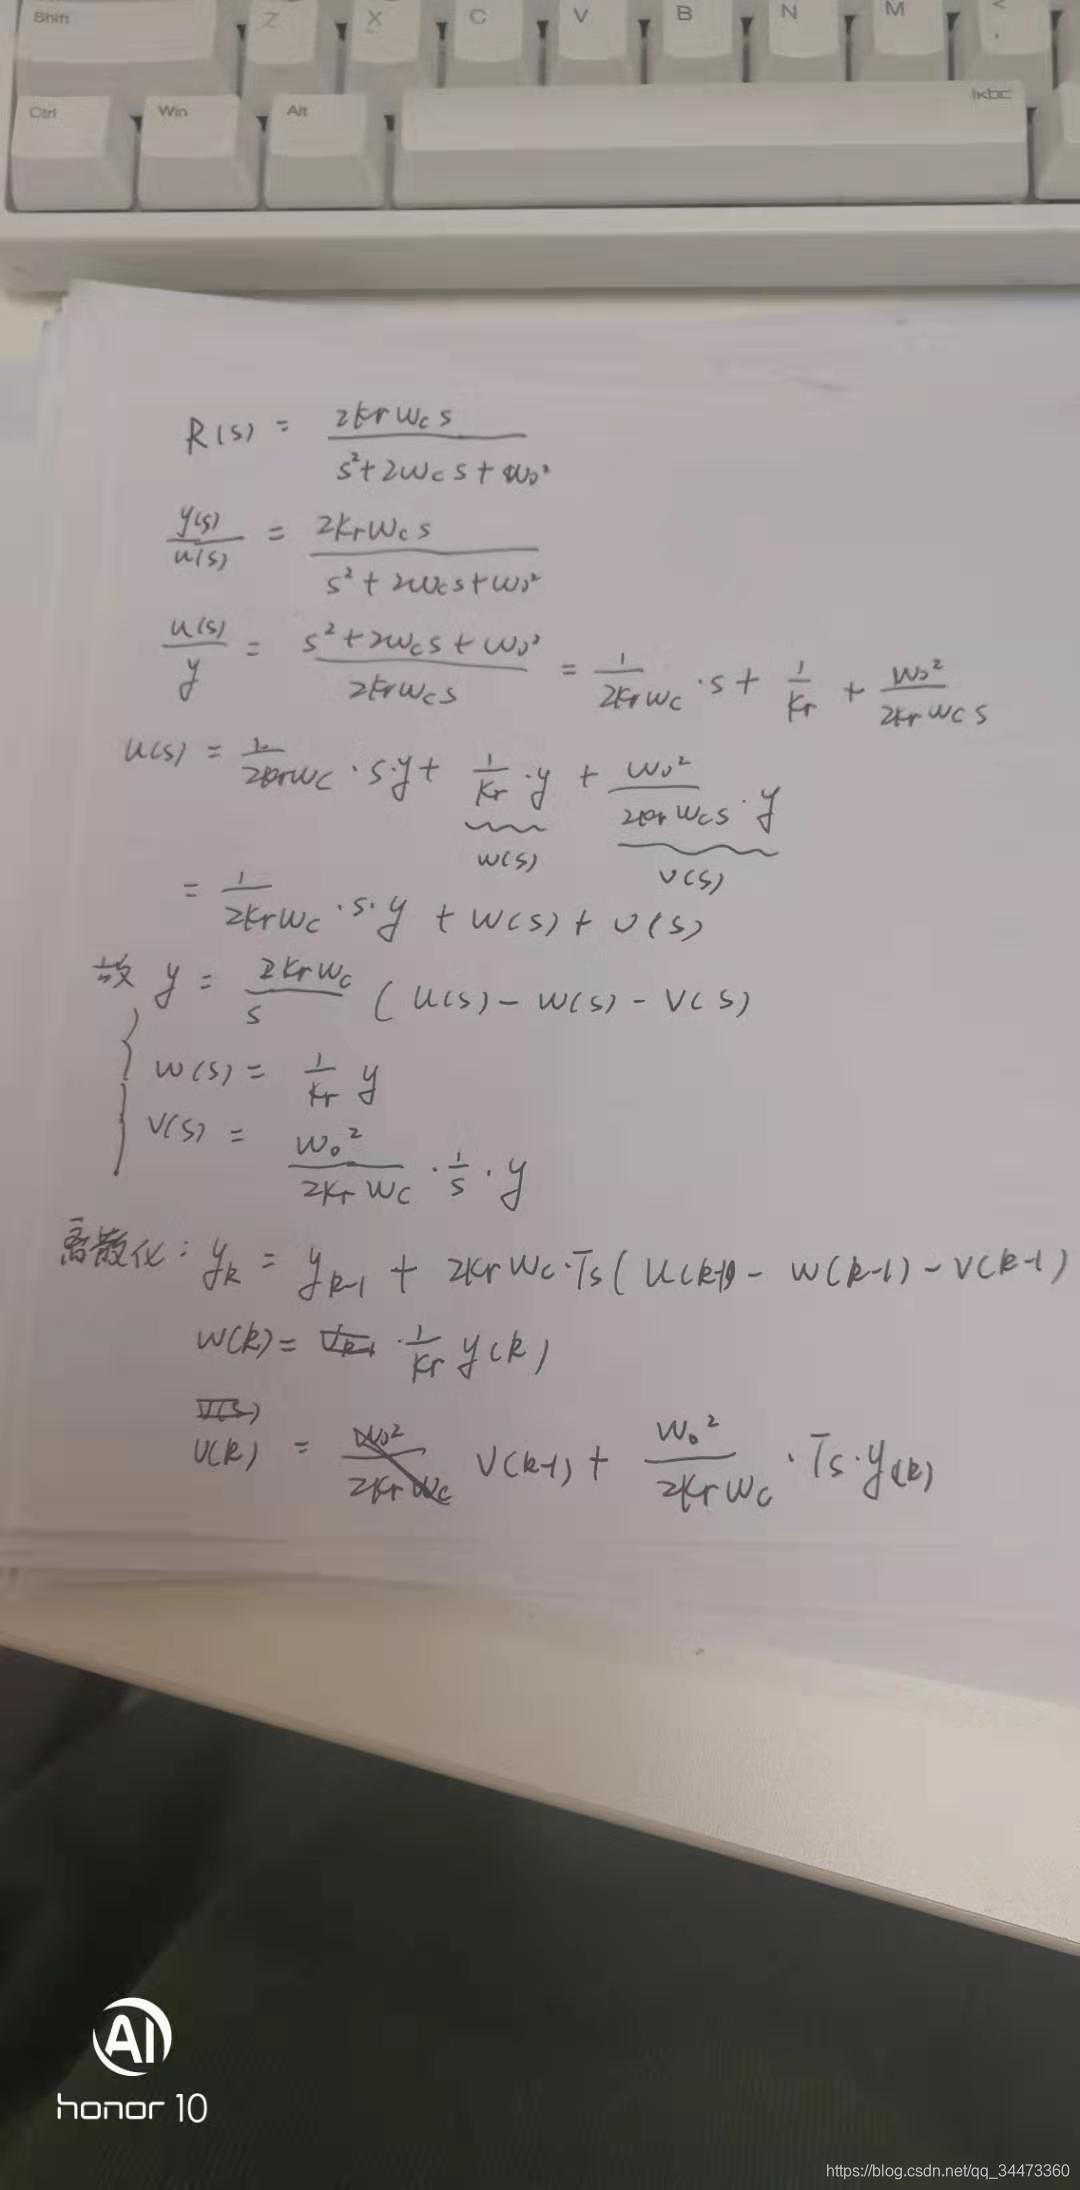 Shift Z X C V B N M <
,
Ctrl Win Alt ikbc
R(s) = 2krwcs / (s²+2wcs+w₀²)
y(s)/u(s) = 2krwcs / (s²+2wcs+w₀²)
u(s)/y = (s²+2wcs+w₀²) / 2krwcs = 1/2krwc · s + 1/kr + w₀²/2krwcs
u(s) = 1/2krwc · s·y + 1/kr · y + w₀²/2krwcs · y
w(s) v(s)
= 1/2krwc · s·y + w(s) + v(s)
故 y = 2krwc/s (u(s) - w(s) - v(s)
w(s) = 1/kr y
v(s) = w₀²/2krwc · 1/s · y
离散化: yk = yk-1 + 2krwc·Ts(u(k-1) - w(k-1) - v(k-1)
w(k) = · 1/kr y(k)
v(k) = v(k-1) + w₀²/2krwc · Ts · y(k)
AI
honor 10
https://blog.csdn.net/qq_34473360